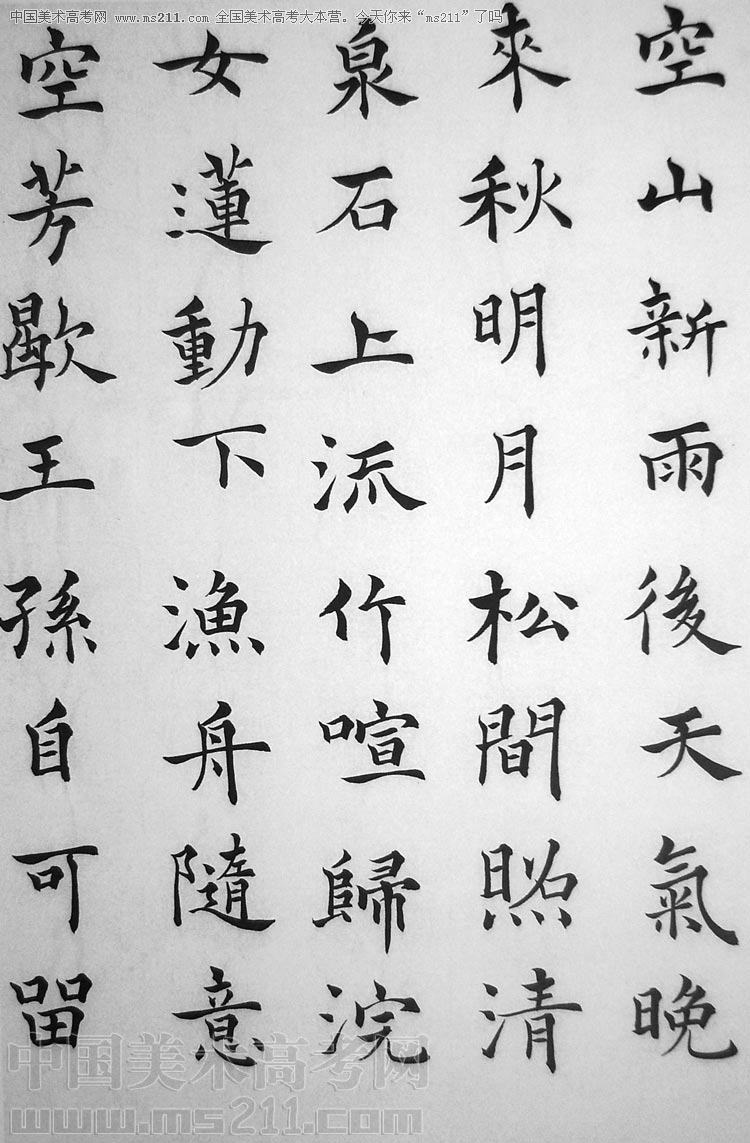 中国美术高考网 www.ms211.com 全国美术高考大本营。今天你来“ms211”了吗
空山新雨後天氣晚
來秋明月松間照清
泉石上流竹喧歸浣
女蓮動下漁舟隨意
空芳歇王孫自可留
中国美术高考网
www.ms211.com